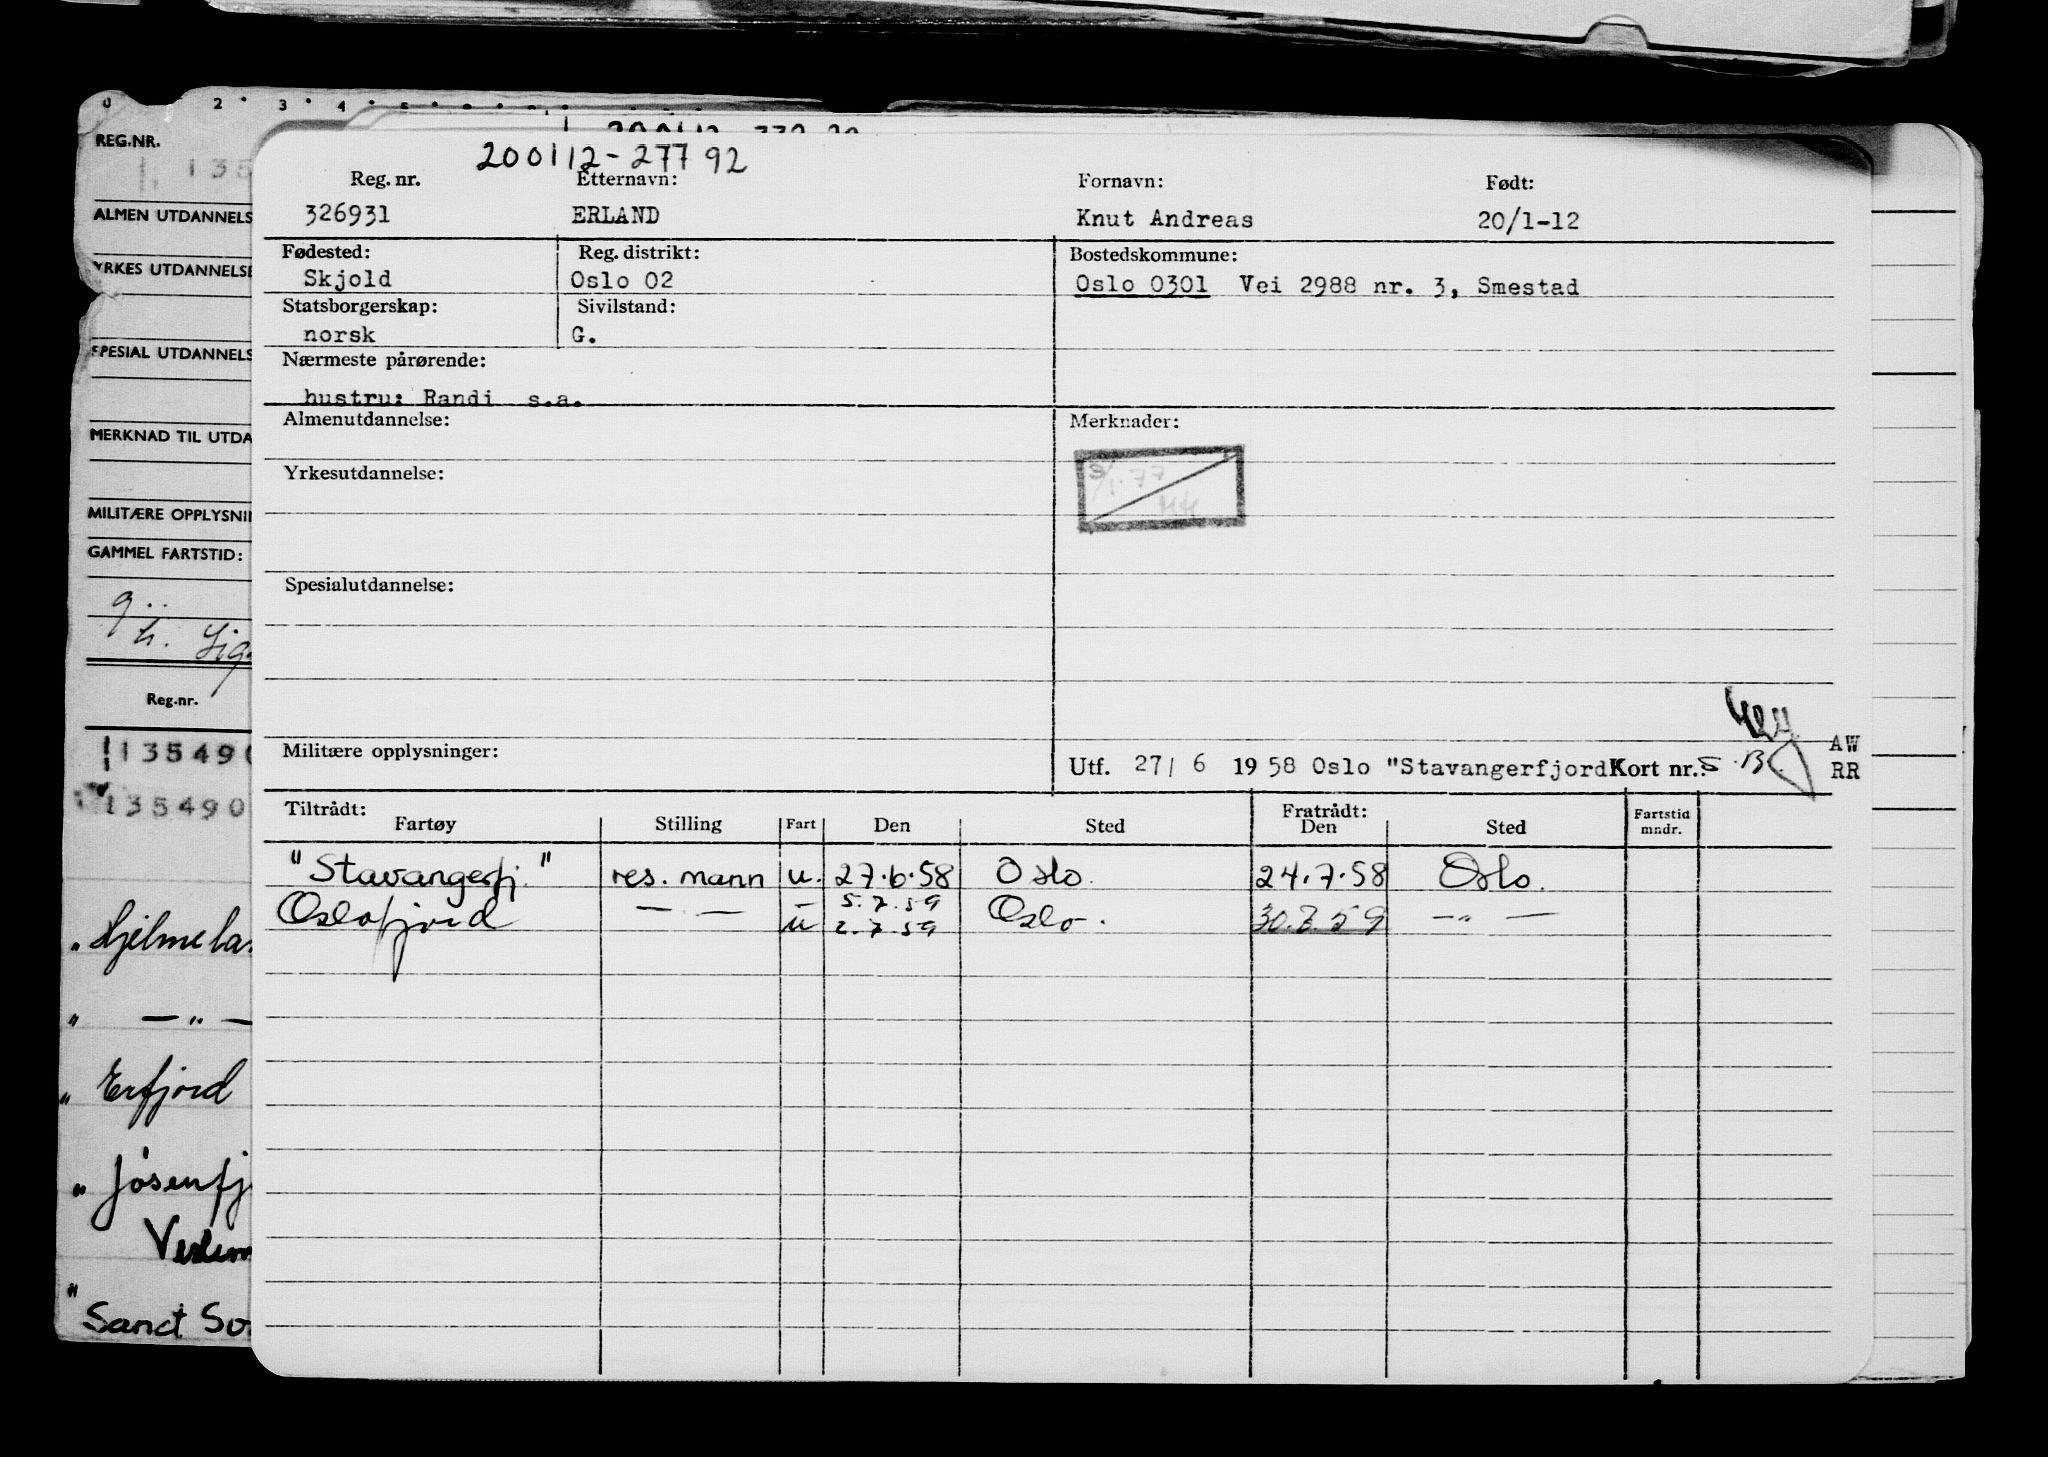 0 2 • 3 • 4 • 5
REG.NR.
135
ALMEN UTDANNELS
YRKES UTDANNELSE
SPESIAL UTDANNELS
MERKNAD TIL UTDA
MILITÆRE OPPLYSNI
GAMMEL FARTSTID:
Reg.nr.
135490
135490
" Hjelmela
" — " —
" Erfjord
" Jøsenfj
"
Sanct Su
200112-27792
Reg. nr. Etternavn: Fornavn: Født:
326931 ERLAND Knut Andreas 20/1-12
Fødested: Reg. distrikt: Bostedskommune:
Skjold Oslo 02 Oslo 0301 Vei 2988 nr. 3, Smestad
Statsborgerskap: Sivilstand:
norsk G.
Nærmeste pårørende:
hustru: Randi s.a.
Almenutdannelse: Merknader:
3/1-77
Yrkesutdannelse:
Spesialutdannelse:
Militære opplysninger:
Utf. 27/ 6 19 58 Oslo "Stavangerfjord Kort nr.: S
AW
RR
Tiltrådt: Fratrådt:
Fartøy Stilling Fart Den Sted Den Sted Fartstid mndr.
"Stavangerfj." res. mann u. 27.6.58 Oslo. 24.7.58 Oslo.
5.7.59
Oslofjord — . — u 2.7.59 Oslo. 30.8.59 — " —